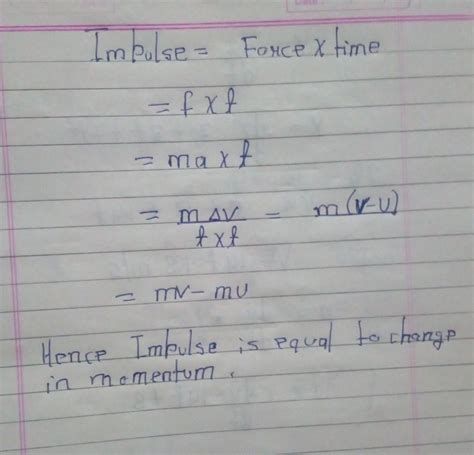 Impulse = Force x time
= f x t
= ma x t
= m ΔV / t x t = m(v-u)
= mv - mu
Hence Impulse is equal to change
in momentum.